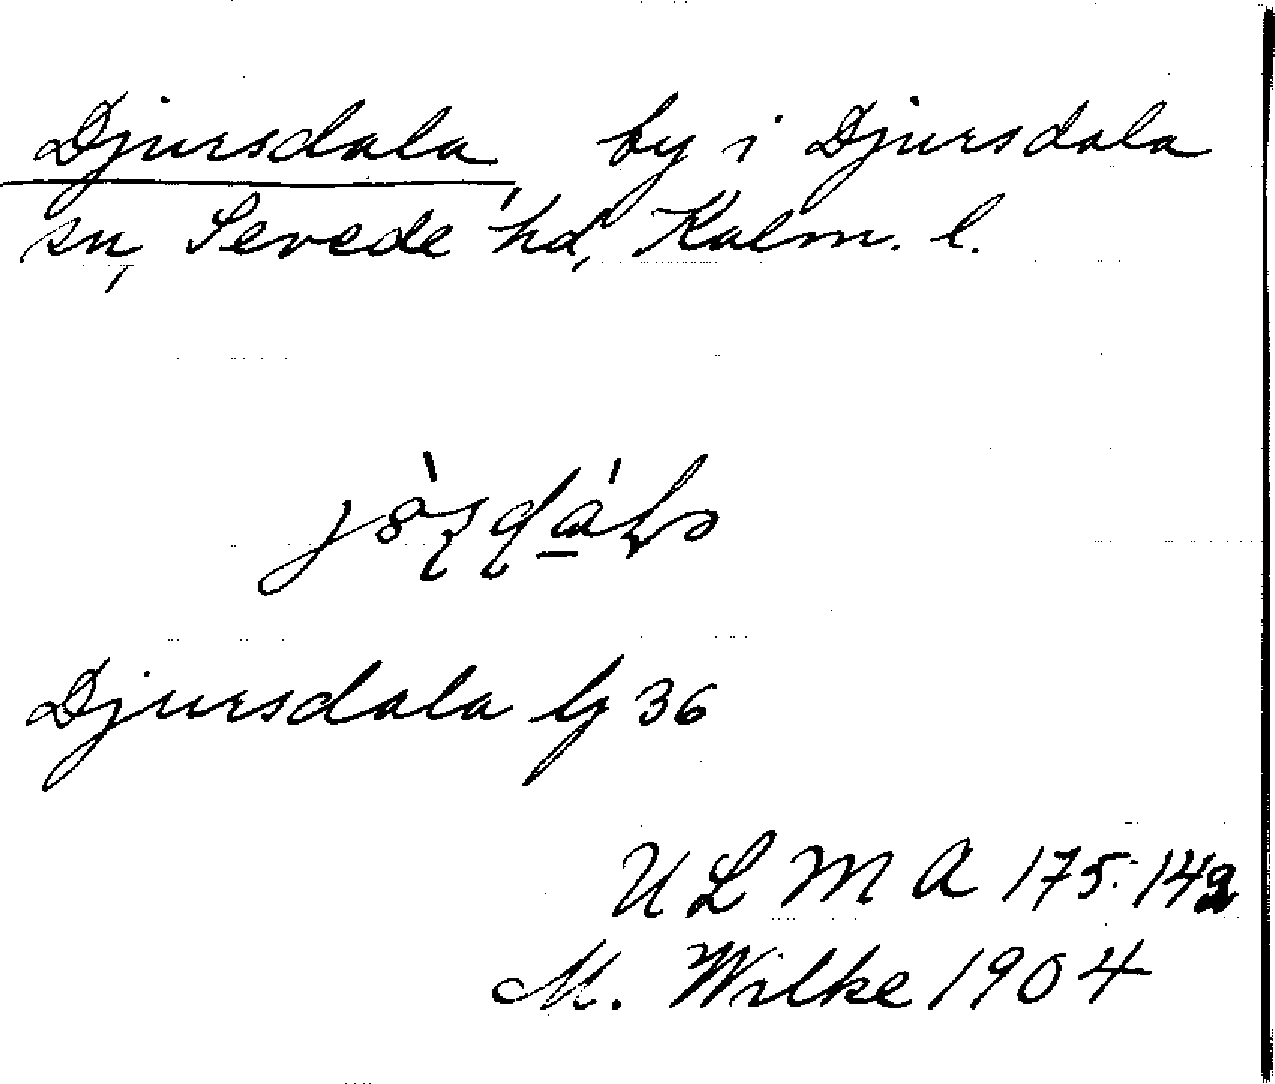 Djursdala by i Djursdala
sn, Sevede hd, Kalm. l.
Djursdala by 36
U L M A 175:142
M. Wilke 1904